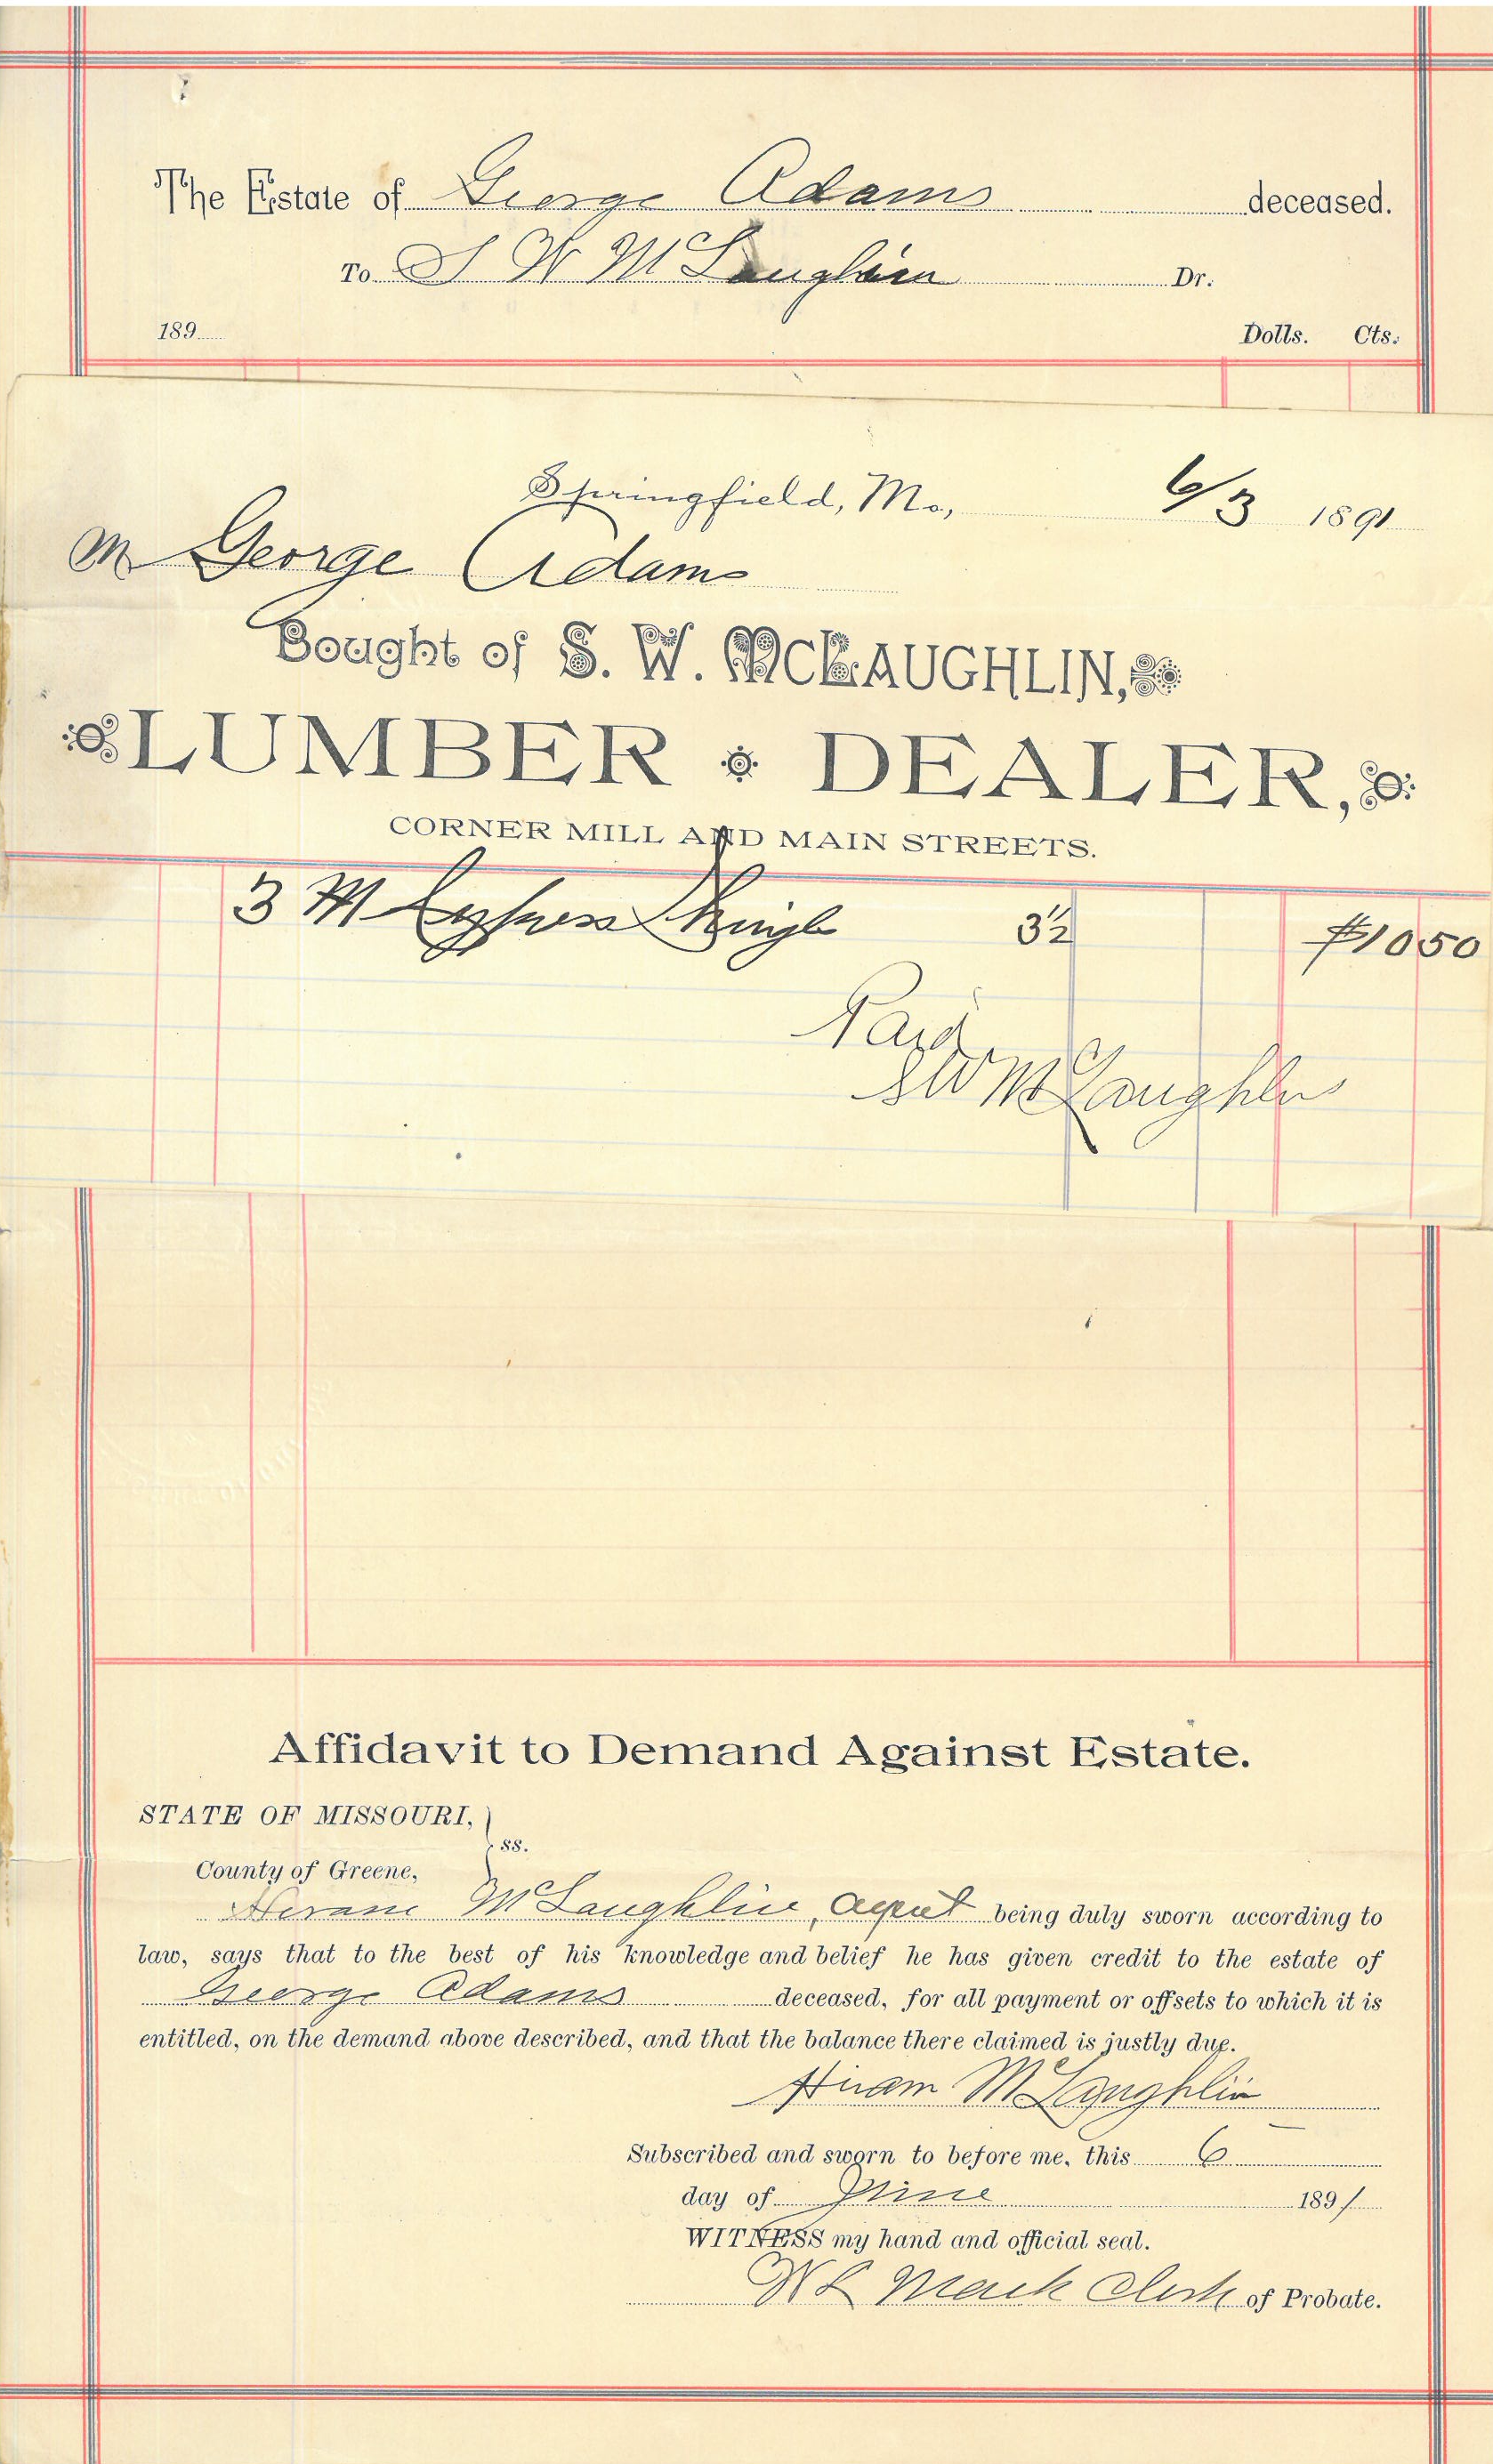 The Estate of George Adams deceased.
To S W McLaughlin Dr.
189
Dolls. Cts.
Springfield, Mo., 6/3 1891
M George Adams
Bought of S. W. McLAUGHLIN,
LUMBER DEALER,
CORNER MILL AND MAIN STREETS.
3 M Cypress Shingle 3½ $10 50
Paid
S W McLaughlin
Affidavit to Demand Against Estate.
STATE OF MISSOURI, }
ss.
County of Greene,
Hiram McLaughlin, Agent being duly sworn according to
law, says that to the best of his knowledge and belief he has given credit to the estate of
George Adams deceased, for all payment or offsets to which it is
entitled, on the demand above described, and that the balance there claimed is justly due.
Hiram McLaughlin
Subscribed and sworn to before me, this 6
day of June 1891
WITNESS my hand and official seal.
W L Mack Clerk of Probate.